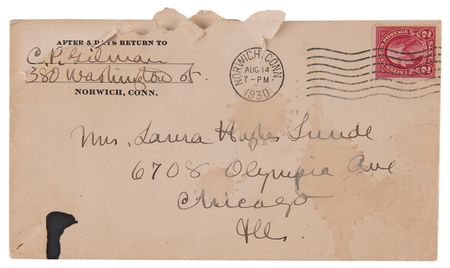 AFTER 5 DAYS RETURN TO
C. P. Gilman
380 Washington St.
NORWICH, CONN.
NORWICH, CONN.
AUG 14
7-PM
1930
Mrs. Laura Hughes Lunde
6708 Olympia Ave
Chicago
Ill.